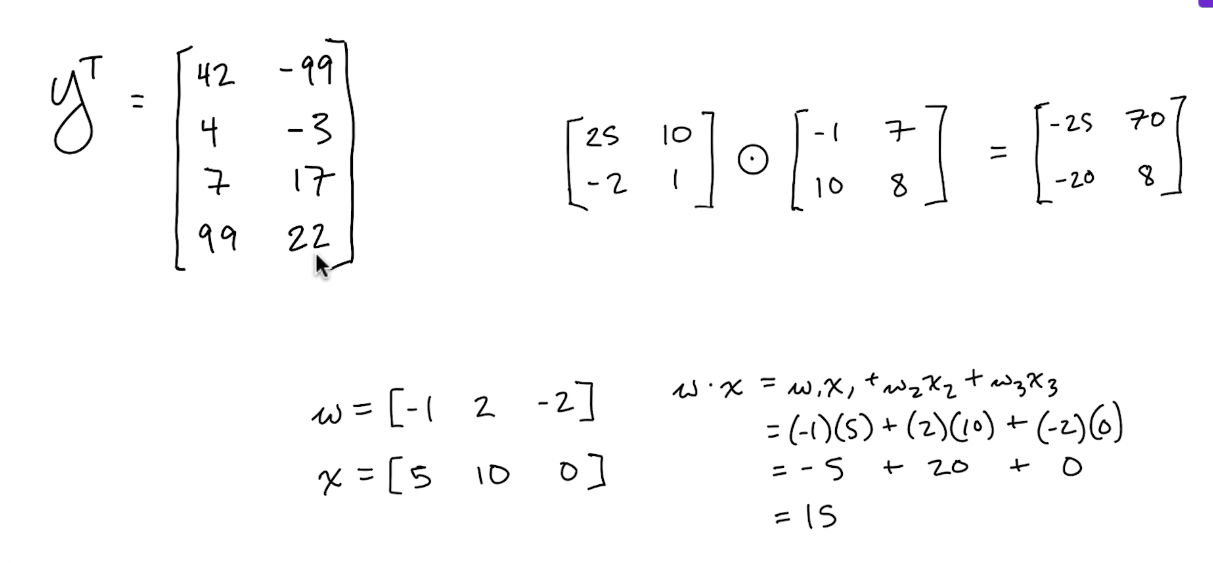 y^T = [42 -99
4 -3
7 17
99 22]
[25 10
-2 1] ⊙ [-1 7
10 8] = [-25 70
-20 8]
w = [-1 2 -2]
x = [5 10 0]
w · x = w₁x₁ + w₂x₂ + w₃x₃
= (-1)(5) + (2)(10) + (-2)(0)
= -5 + 20 + 0
= 15